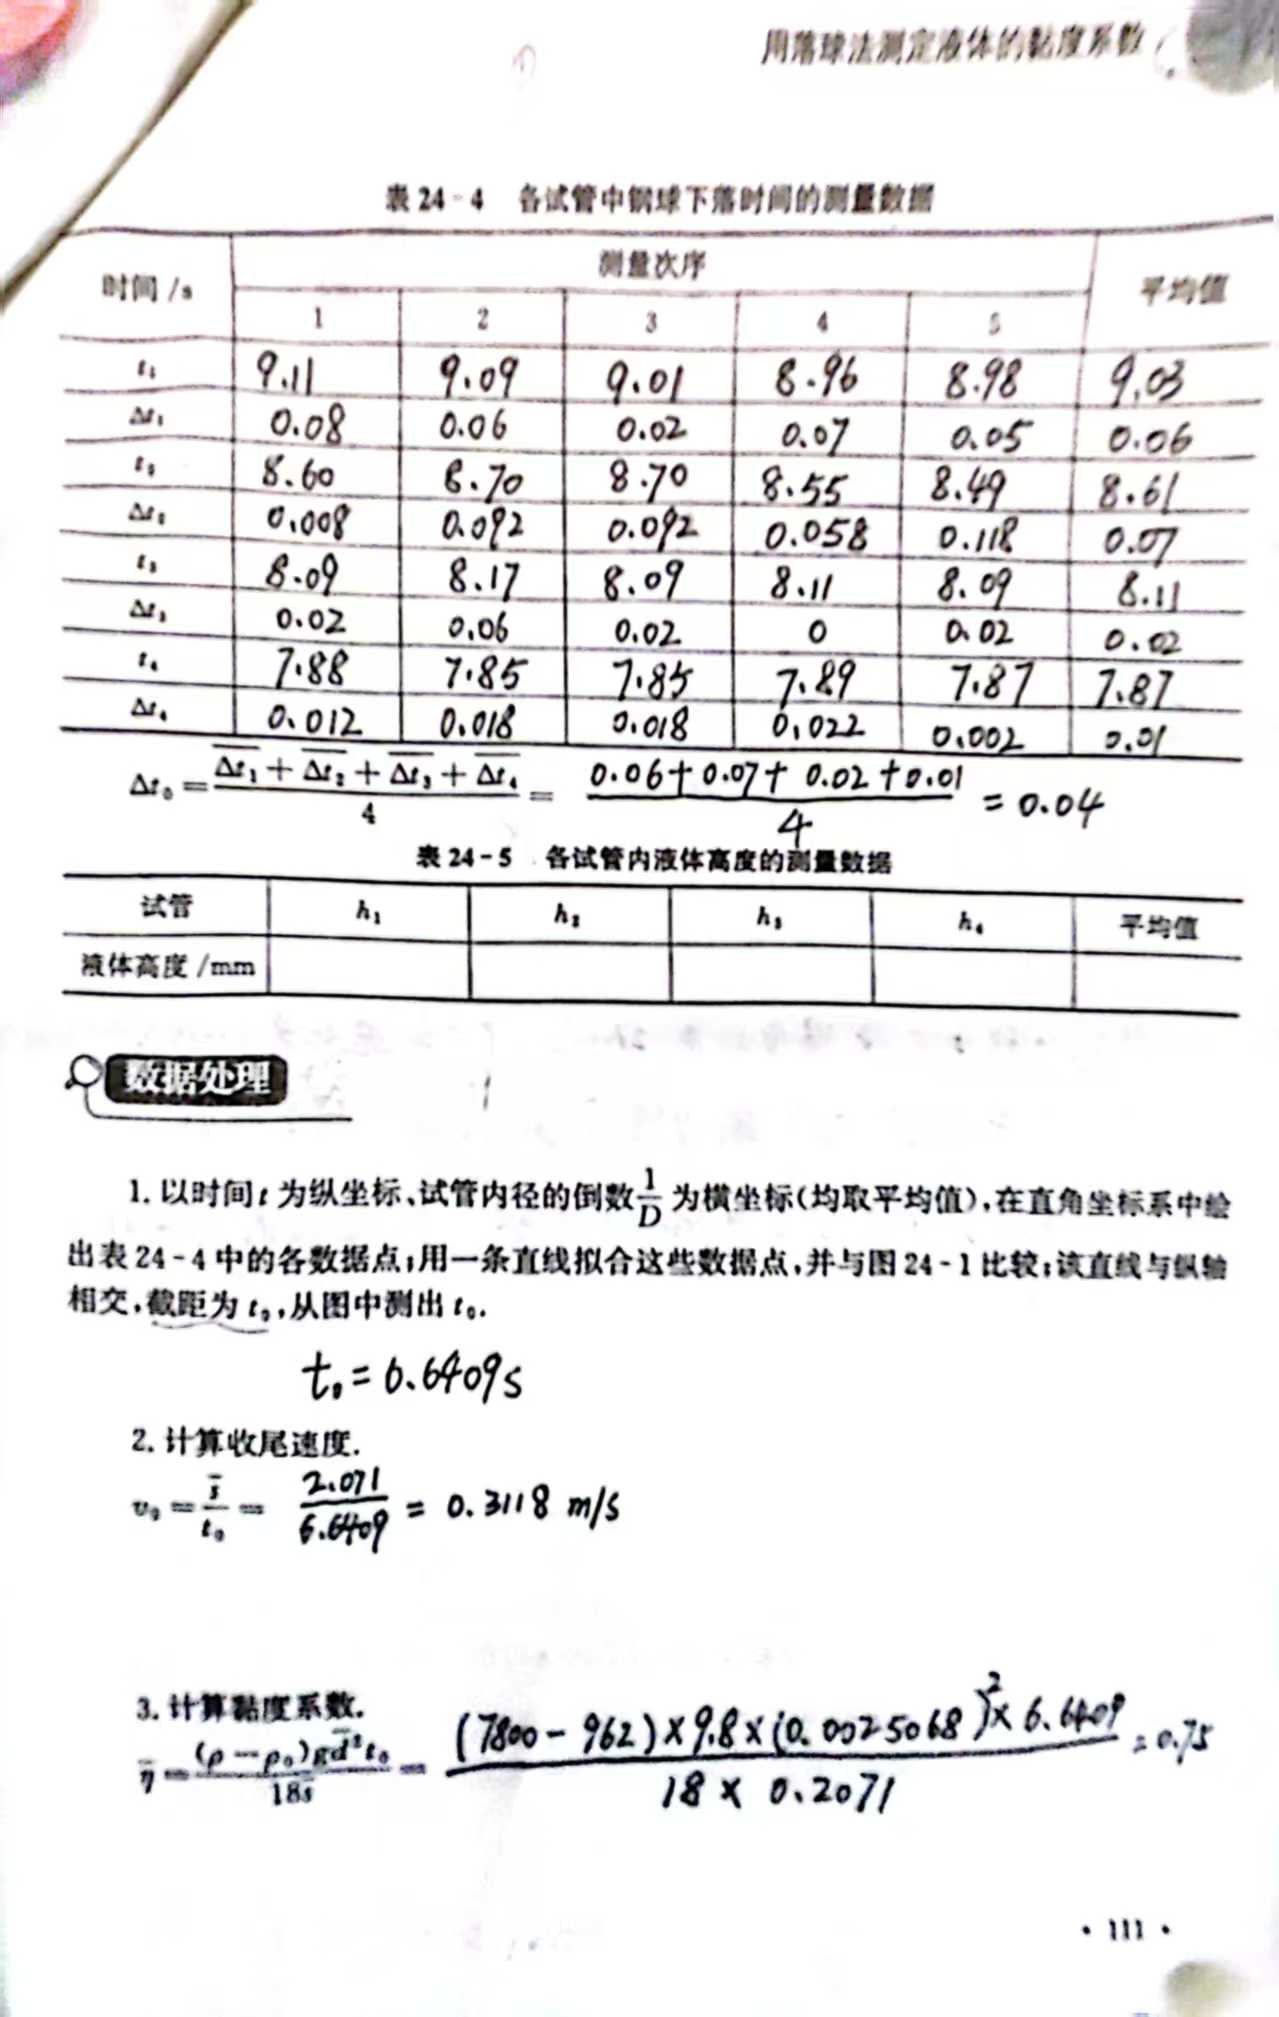 用落球法测定液体的黏度系数
表 24-4 各试管中钢球下落时间的测量数据
时间/s 测量次序 平均值
1 2 3 4 5
t₁ 9.11 9.09 9.01 8.96 8.98 9.03
Δt₁ 0.08 0.06 0.02 0.07 0.05 0.06
t₂ 8.60 8.70 8.70 8.55 8.49 8.61
Δt₂ 0.008 0.092 0.092 0.058 0.118 0.07
t₃ 8.09 8.17 8.09 8.11 8.09 8.11
Δt₃ 0.02 0.06 0.02 0 0.02 0.02
t₄ 7.88 7.85 7.85 7.89 7.87 7.87
Δt₄ 0.012 0.018 0.018 0.022 0.002 0.01
Δt₀ = (Δt₁ + Δt₂ + Δt₃ + Δt₄)/4 = (0.06+0.07+0.02+0.01)/4 = 0.04
表 24-5 各试管内液体高度的测量数据
试管 h₁ h₂ h₃ h₄ 平均值
液体高度/mm
数据处理
1. 以时间 t 为纵坐标、试管内径的倒数 1/D 为横坐标(均取平均值),在直角坐标系中绘
出表 24-4 中的各数据点;用一条直线拟合这些数据点,并与图 24-1 比较;该直线与纵轴
相交,截距为 t₀,从图中测出 t₀.
t₀ = 6.6409s
2. 计算收尾速度.
v₀ = s̄/t₀ = 2.071/6.6409 = 0.3118 m/s
3. 计算黏度系数.
η̄ = (ρ-ρ₀)gd̄²t₀/18s̄ = (7800-962)×9.8×(0.0025068)²×6.6409/18×0.2071 = 0.75
· 111 ·